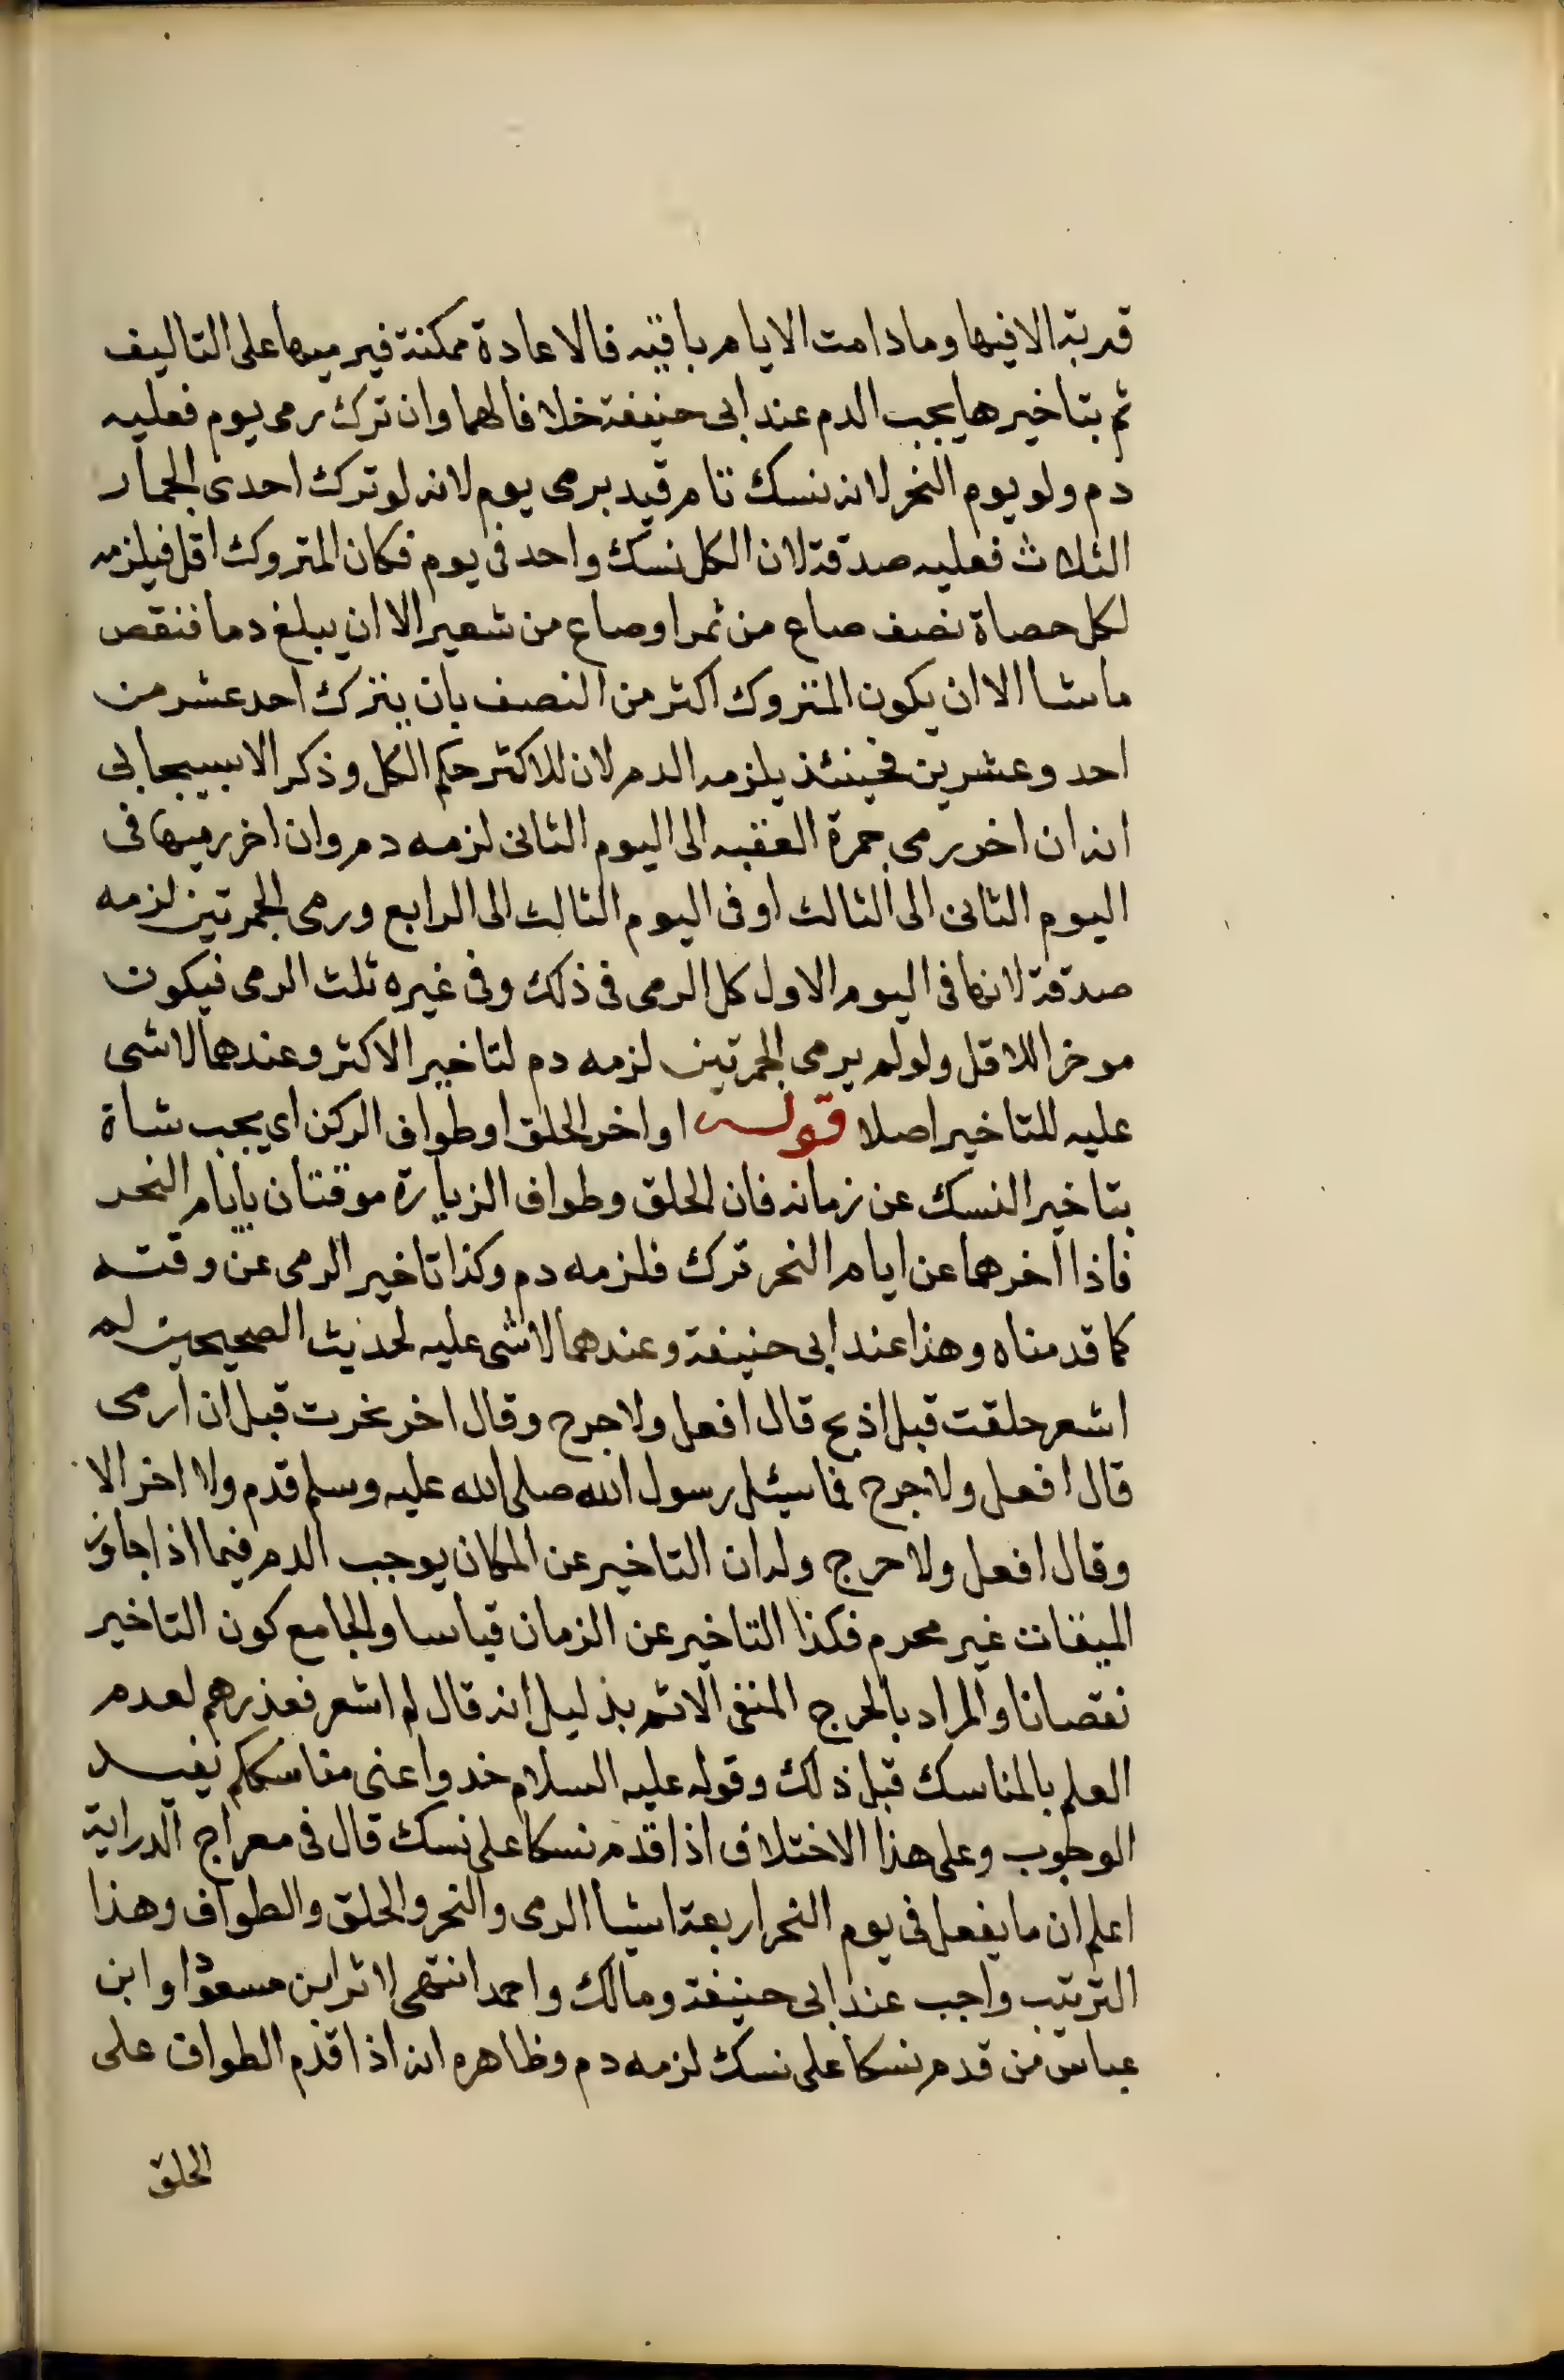 قربة الا فيها وما دامت الايام باقيه فالاعادة ممكنة فيرميها على التاليف
ثم بتاخيرها يجب الدم عند ابى حنيفة خلافا لهما وان ترك رمى يوم فعليه
دم ولو يوم النحر لانه نسك تام قيد برمى يوم لانه لو ترك احدى الجمار
الثلاث فعليه صدقة لان الكل نسك واحد فى يوم فكان المتروك اقل فيلزمه
لكل حصاة نصف صاع من تمر او صاع من شعير الا ان يبلغ دما فنقص
ماشا الا ان يكون المتروك اكثر من النصف بان يترك احد عشر من
احد وعشرين فحينئذ يلزمه الدم لان للاكثر حكم الكل وذكر الاسبيجابى
انه ان اخر رمى جمرة العقبه الى اليوم الثانى لزمه دم وان اخر رميها فى
اليوم الثانى الى الثالث او فى اليوم الثالث الى الرابع ورمى الجمرتين لزمه
صدقة لانها فى اليوم الاول كل الرمى فى ذلك وفى غيره ثلث الرمى فيكون
موخرا للاقل ولو لم يرمى الجمرتين لزمه دم لتاخير الاكثر وعندهما لاشى
عليه للتاخير اصلا قوله او اخر الحلق او طواف الركن اى يجب شاة
بتاخير النسك عن زمانه فان الحلق وطواف الزيارة موقتان بايام النحر
فاذا اخرهما عن ايام النحر ترك فلزمه دم وكذا تاخير الرمى عن وقته
كما قدمناه وهذا عند ابى حنيفة وعندهما لاشى عليه لحديث الصحيحين لم
اشعر حلقت قبل اذبح قال افعل ولا حرج وقال اخر نحرت قبل ان ارمى
قال افعل ولا حرج فما سئل رسول الله صلى الله عليه وسلم قدم ولا اخر الا
وقال افعل ولا حرج وله ان التاخير عن المكان يوجب الدم فيما اذا جاوز
الميقات غير محرم فكذا التاخير عن الزمان قياسا والجامع كون التاخير
نقصانا والمراد بالحرج المنفى الاثم بدليل انه قال لم اشعر فعذرهم لعدم
العلم بالمناسك قبل ذلك وقوله عليه السلام خدوا عنى مناسككم يفيد
الوجوب وعلى هذا الاختلاف اذا قدم نسكا على نسك قال فى معراج الدراية
اعلم ان ما يفعل فى يوم النحر اربعة اشيا الرمى والنحر والحلق والطواف وهذا
الترتيب واجب عند ابى حنيفة ومالك واحمد انتهى لاثر ابن مسعود او ابن
عباس من قدم نسكا على نسك لزمه دم وظاهره انه اذا قدم الطواف على
الحلق